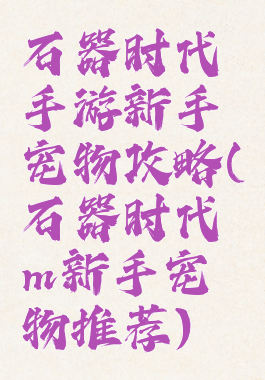 石器时代
手游新手
宠物攻略(
石器时代
m新手宠
物推荐)